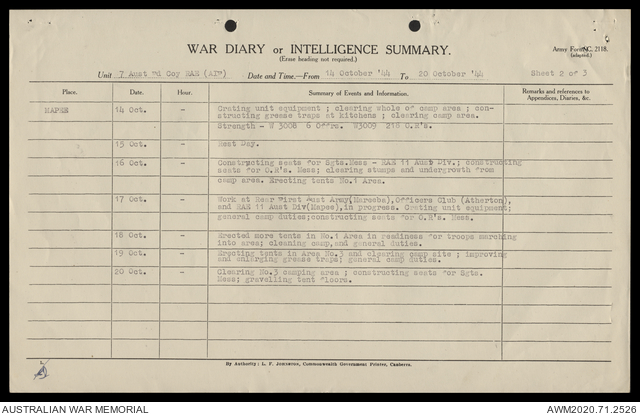 WAR DIARY or INTELLIGENCE SUMMARY.
(Erase heading not required.)
Army Form C. 2118.
(adapted.)
Unit 7 Aust Fd Coy RAE (AIF) Date and Time.—From 14 October '44 To 20 October '44 Sheet 2 of 3
Place. Date. Hour. Summary of Events and Information. Remarks and references to
Appendices, Diaries, &c.
MAPEE 14 Oct. - Crating unit equipment ; clearing whole of camp area ; con-
structing grease traps at kitchens ; clearing camp area.
Strength - W 3008 6 Offrs. W3009 218 O.R's.
15 Oct. - Rest Day.
16 Oct. - Constructing seats for Sgts.Mess - RAE 11 Aust Div.; constructing
seats for O.R's. Mess; clearing stumps and undergrowth from
camp area. Erecting tents No.1 Area.
17 Oct. - Work at Rear First Aust Army(Mareeba),Officers Club (Atherton),
and RAE 11 Aust Div(Mapee),in progress. Crating unit equipment;
general camp duties;constructing seats for O.R's. Mess.
18 Oct. - Erected more tents in No.1 Area in readiness for troops marching
into area; cleaning camp,and general duties.
19 Oct. - Erecting tents in Area No.3 and clearing camp site ; improving
and enlarging grease traps; general camp duties.
20 Oct. - Clearing No.3 camping area ; constructing seats for Sgts.
Mess; gravelling tent floors.
By Authority : L. F. Johnston, Commonwealth Government Printer, Canberra.
AUSTRALIAN WAR MEMORIAL
AWM2020.71.2526